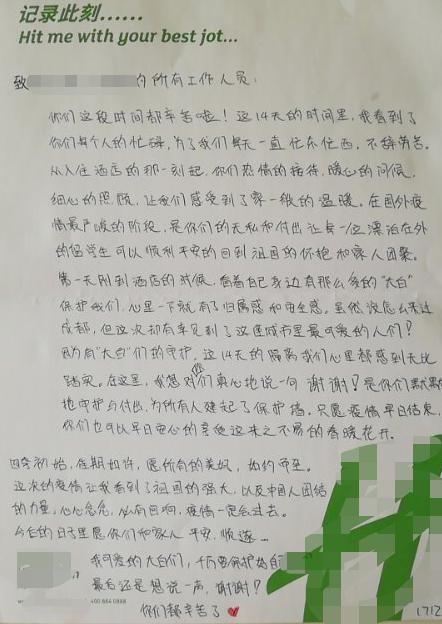 记录此刻......
Hit me with your best jot...
致 的所有工作人员：
你们这段时间都辛苦啦！这14天的时间里，我看到了
你们每个人的忙碌，为了我们每天一直忙东忙西，不辞劳苦。
从入住酒店的那一刻起，你们热情的接待，暖心的问候，
细心的照顾，让我们感受到了家一般的温暖。在国外疫
情最严峻的阶段，是你们的无私和付出让每一位漂泊在外
的留学生可以顺利平安的回到祖国的怀抱和家人团聚。
第一天刚到酒店的时候，看着自己身边有那么多的“大白”
保护我们，心里一下就有了归属感和安全感。虽然没怎么来过
成都，但这次却有幸见到了这座城市里最可爱的人们？
因为有“大白”们的守护，这14天的隔离我们心里都感到无比
踏实。在这里，我想对你们真心地说一句 谢谢？是你们默默
地守护与付出，为所有人建起了保护墙。只愿疫情早日结束，
你们也可以早日安心的享受这来之不易的春暖花开。
四季初始，佳期如许，愿所有的美好，如约而至。
这次的疫情让我看到了祖国的强大，以及中国人团结
的力量，心心念念，必有回响，疫情一定会过去。
今后的日子里愿你们和家人 平安，顺遂...
我可爱的大白们，千万要保护好自
最后还是想说一声，谢谢？
你们都辛苦了
400 884 0888
(712